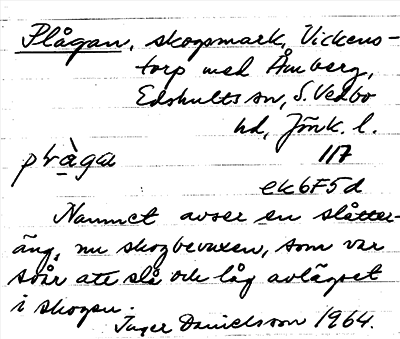 Plågan, skogsmark, Vickens-
torp med Åmberg,
Edshults sn, S. Vedbo
hd, Jönk. l.
117
plàga
ek6F5d
Namnet avser en slåtter-
äng, nu skogbevuxen, som var
svår att slå och låg avlägset
i skogen.
Inger Danielsson 1964.